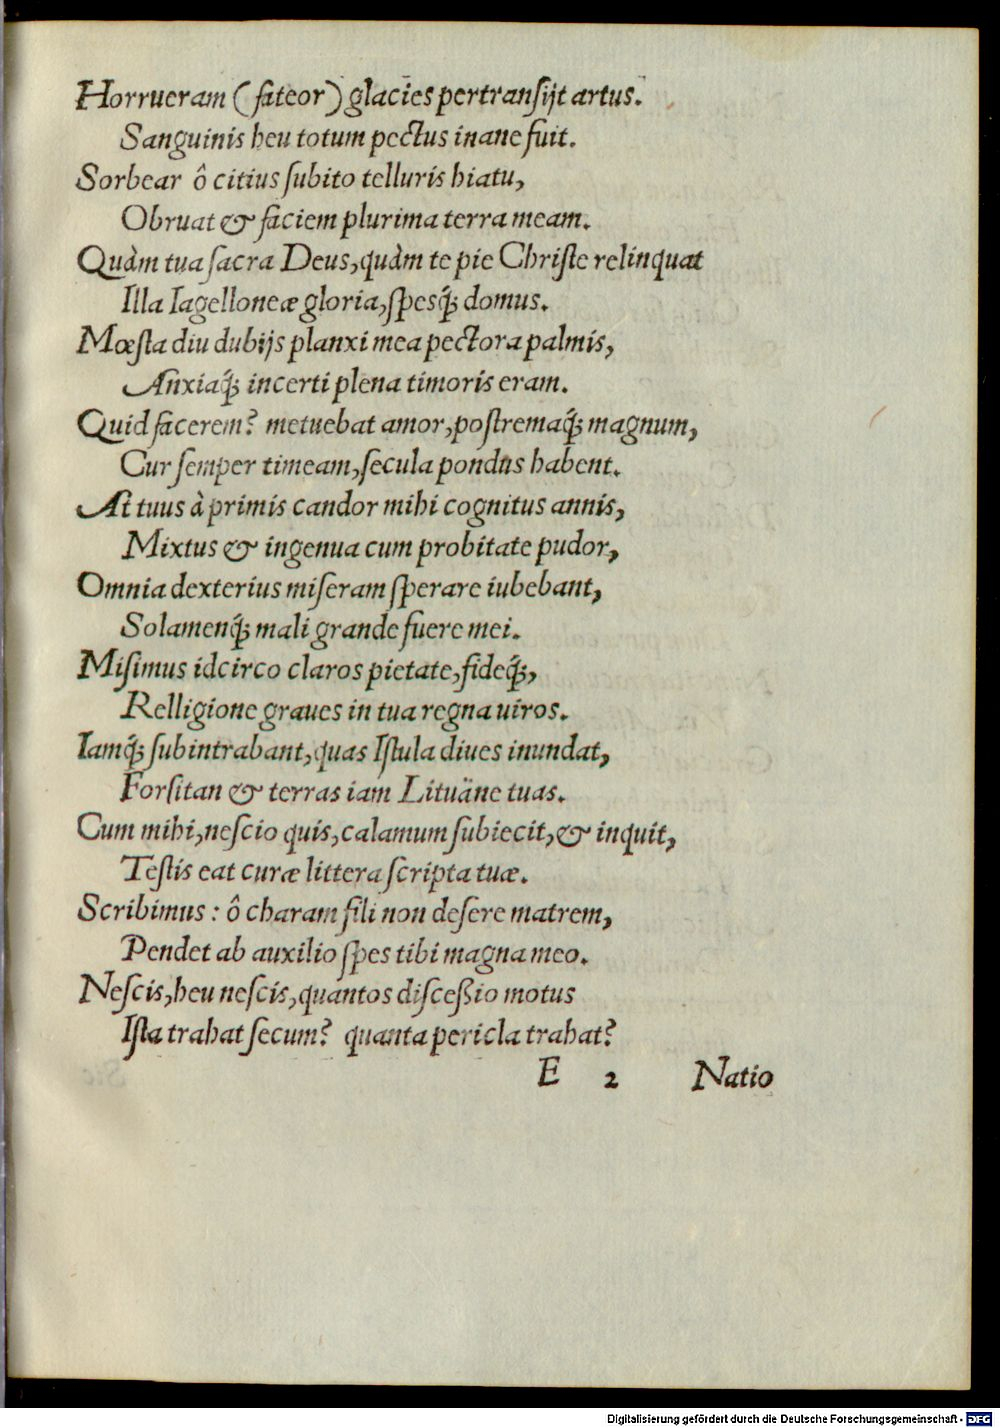 Horrueram (fateor) glacies pertransijt artus.
Sanguinis heu totum pectus inane fuit.
Sorbear ô citius subito telluris hiatu,
Obruat & faciem plurima terra meam.
Quàm tua sacra Deus, quàm te pie Christe relinquat
Illa Iagelloneæ gloria, spesq́; domus.
Mœsta diu dubijs planxi mea pectora palmis,
Anxiaq́; incerti plena timoris eram.
Quid facerem? metuebat amor, postremaq́; magnum,
Cur semper timeam, secula pondus habent.
At tuus à primis candor mihi cognitus annis,
Mixtus & ingenua cum probitate pudor,
Omnia dexterius miseram sperare iubebant,
Solamenq́; mali grande fuere mei.
Misimus idcirco claros pietate, fideq́;,
Relligione graues in tua regna uiros.
Iamq́; subintrabant, quas Istula diues inundat,
Forsitan & terras iam Lituäne tuas.
Cum mihi, nescio quis, calamum subiecit, & inquit,
Testis eat curæ littera scripta tuæ.
Scribimus: ô charam fili non desere matrem,
Pendet ab auxilio spes tibi magna meo.
Nescis, heu nescis, quantos disceßio motus
Ista trahat secum? quanta pericla trahat?
E 2 Natio
Digitalisierung gefördert durch die Deutsche Forschungsgemeinschaft - DFG